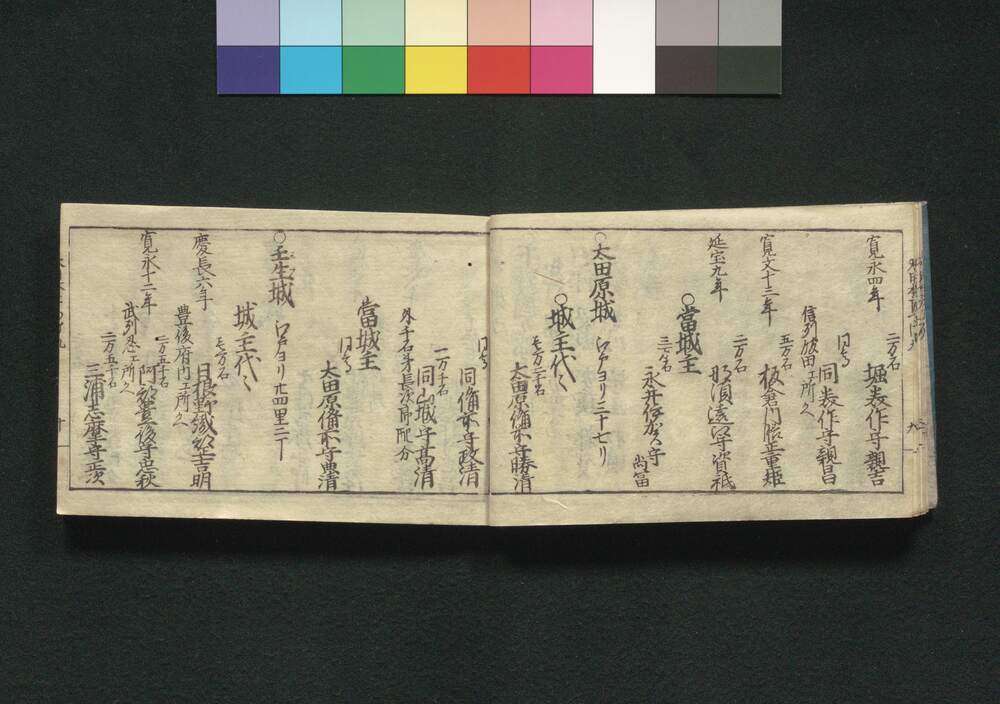 寛永四年
二万石
堀美作守親吉
同美作守親昌
信列飯田エ所久
寛文十三年
五万石
板倉内膳正重矩
延宝九年
二万石
那須遠江守資祗
○當城主
三万石
永井伊賀守
尚冨
○太田原城
江戸ヨリ三十七リ
○城主代々
壱万二千石
大田原備前守勝清
同備前守政清
一万千石
同山城守高清
外千石弟長次郎配分
當城主
大田原備前守典清
○壬生城
江戸ヨリ廿四里二丁
城主代々
慶長六年
壱万石
日根野織部正吉明
豊後府内エ所久
寛永十二年
二万五千石
阿部豊後守忠秋
武列忍エ所久
二万五千石
三浦志摩守正次